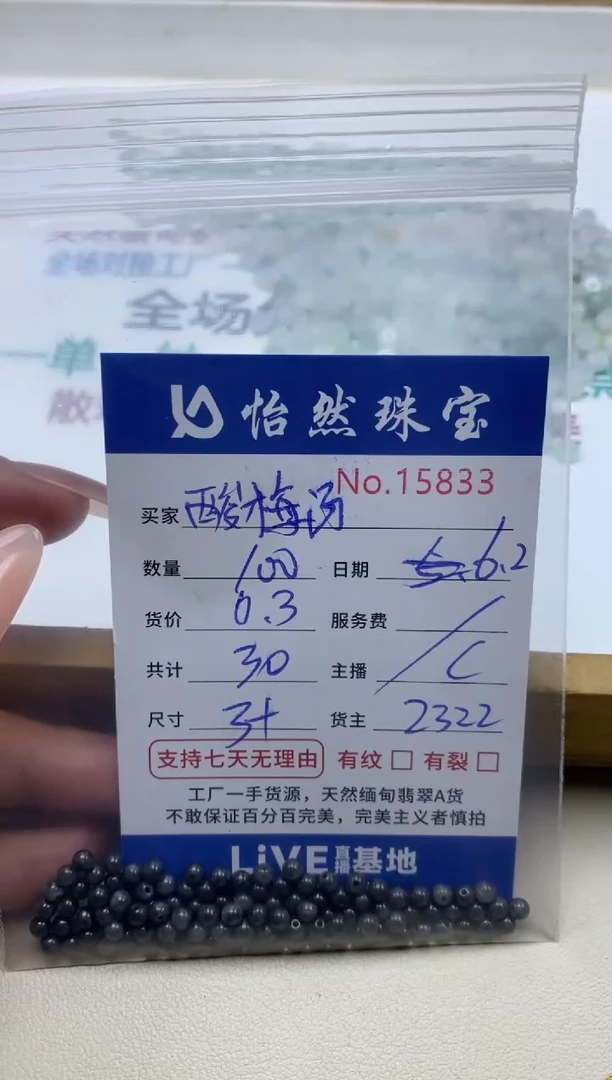 全场对接工厂
全场
一单
散
怡然珠宝
No.15833
买家 酸梅汤
数量 100 日期 6.2
货价 0.3 服务费 /
共计 30 主播 C
尺寸 3+ 货主 2322
支持七天无理由 有纹 □ 有裂 □
工厂一手货源，天然缅甸翡翠A货
不敢保证百分百完美，完美主义者慎拍
LiVE直播基地